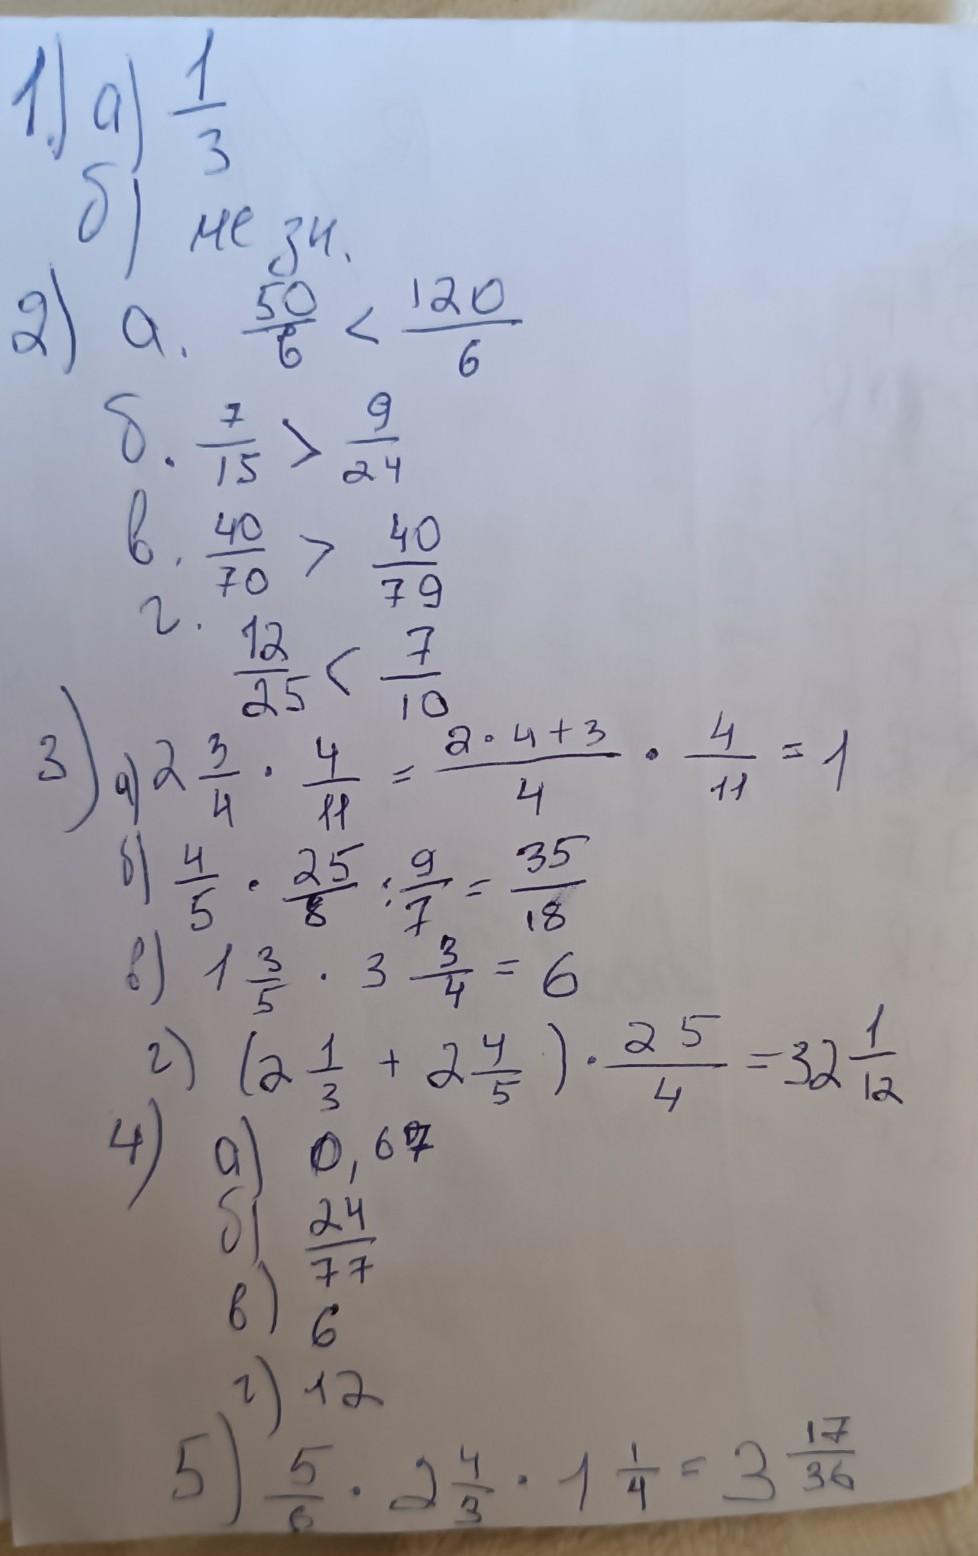 1.) а) 1/3
б) не зн.
2) а. 50/6 < 120/6
б. 7/15 > 9/24
в. 40/70 > 40/79
г. 12/25 < 7/10
3) а) 2 3/4 · 4/11 = 2·4+3/4 · 4/11 = 1
б) 4/5 · 25/8 : 9/7 = 35/18
в) 1 3/5 · 3 3/4 = 6
г) (2 1/3 + 2 4/5) · 25/4 = 32 1/12
4) а) 0,67
б) 24/77
в) 6
г) 12
5) 5/6 · 2 4/3 · 1 1/4 = 3 17/36